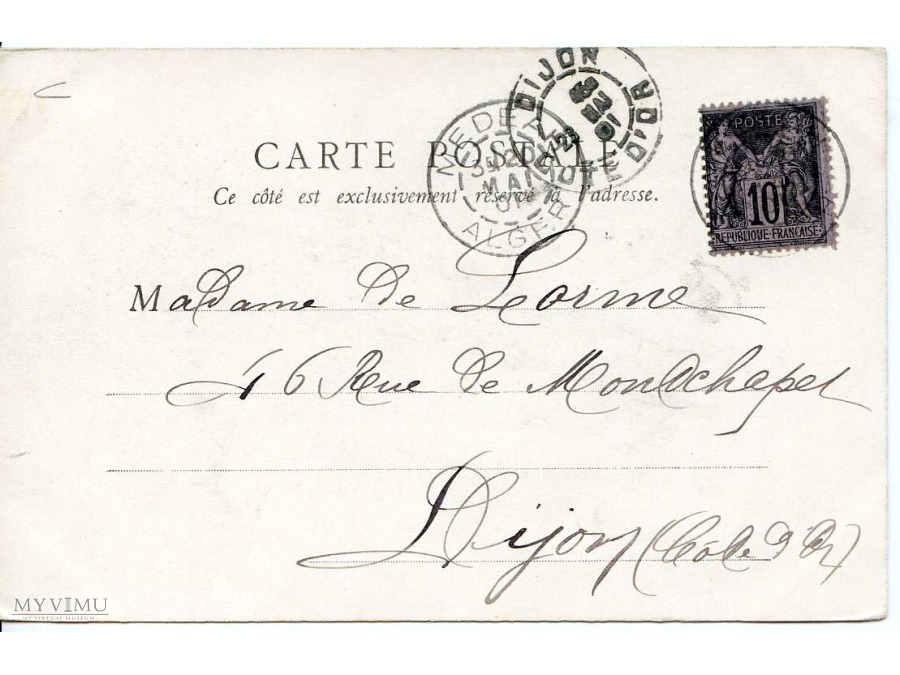 CARTE POSTALE
Ce côté est exclusivement réservé à l'adresse.
Madame de Lorme
16 Rue de Montchapet
Dijon (Côte d'Or)
DIJON
CÔTE D'OR
MEDEA
ALGER
MAI
01
POSTE
10
REPUBLIQUE FRANÇAISE
MYVIMU
MY VIRTUAL MUSEUM